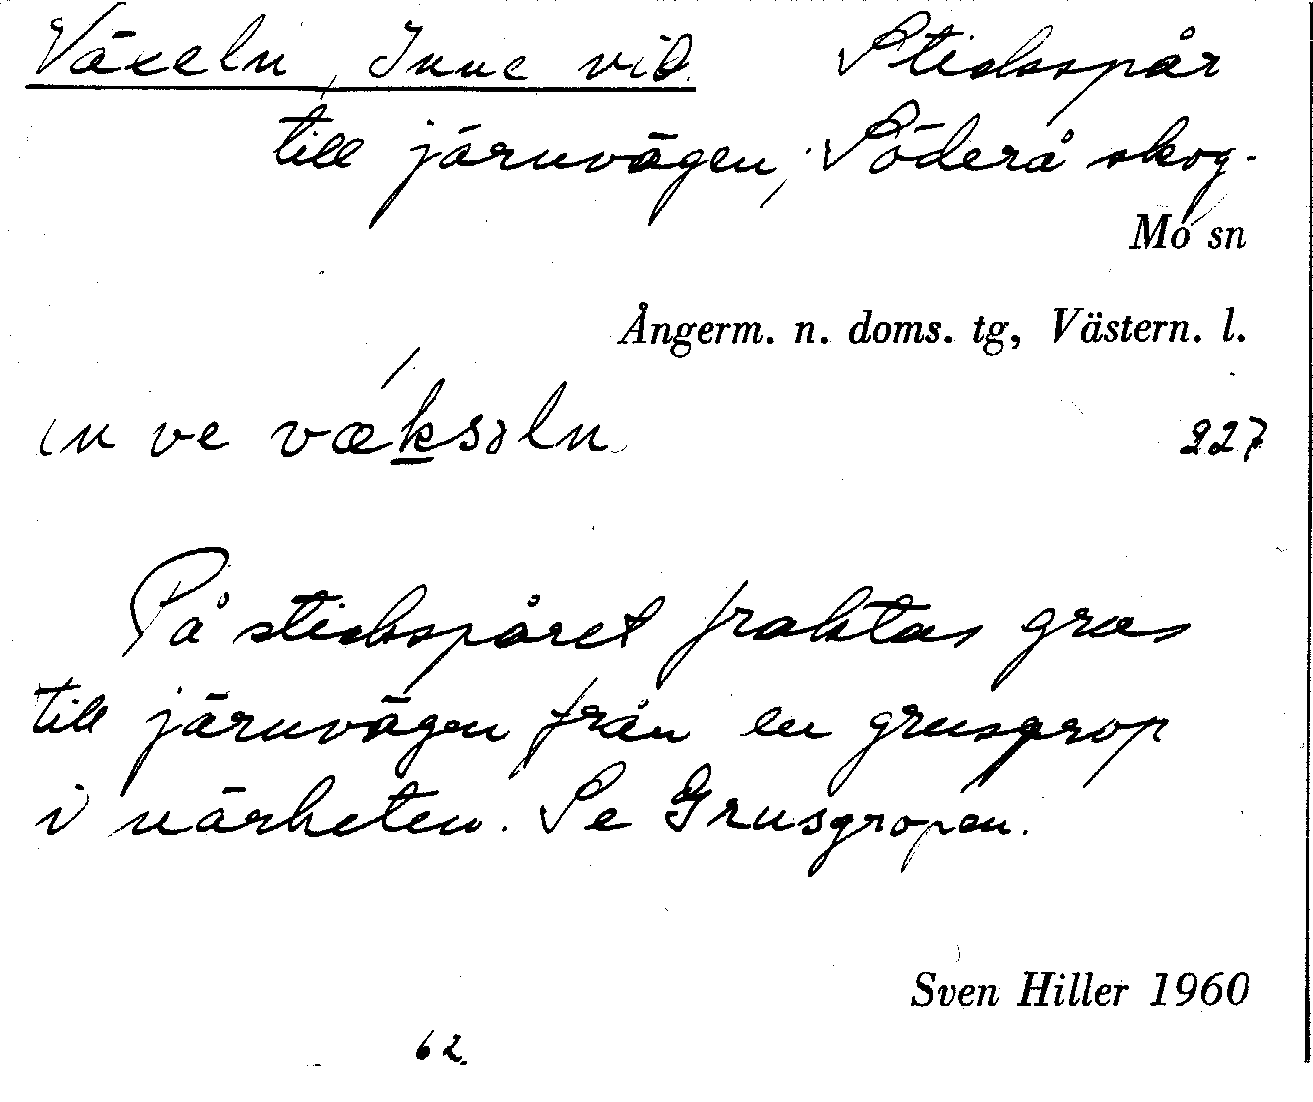 Växeln, Inne vid Stickspår
till järnvägen, Söderå skog.
Mo sn
Ångerm. n. doms. tg, Västern. l.
in ve vǽksəln 227
På stickspåret fraktas grus
till järnvägen från en grusgrop
i närheten. Se Grusgropen.
Sven Hiller 1960
62